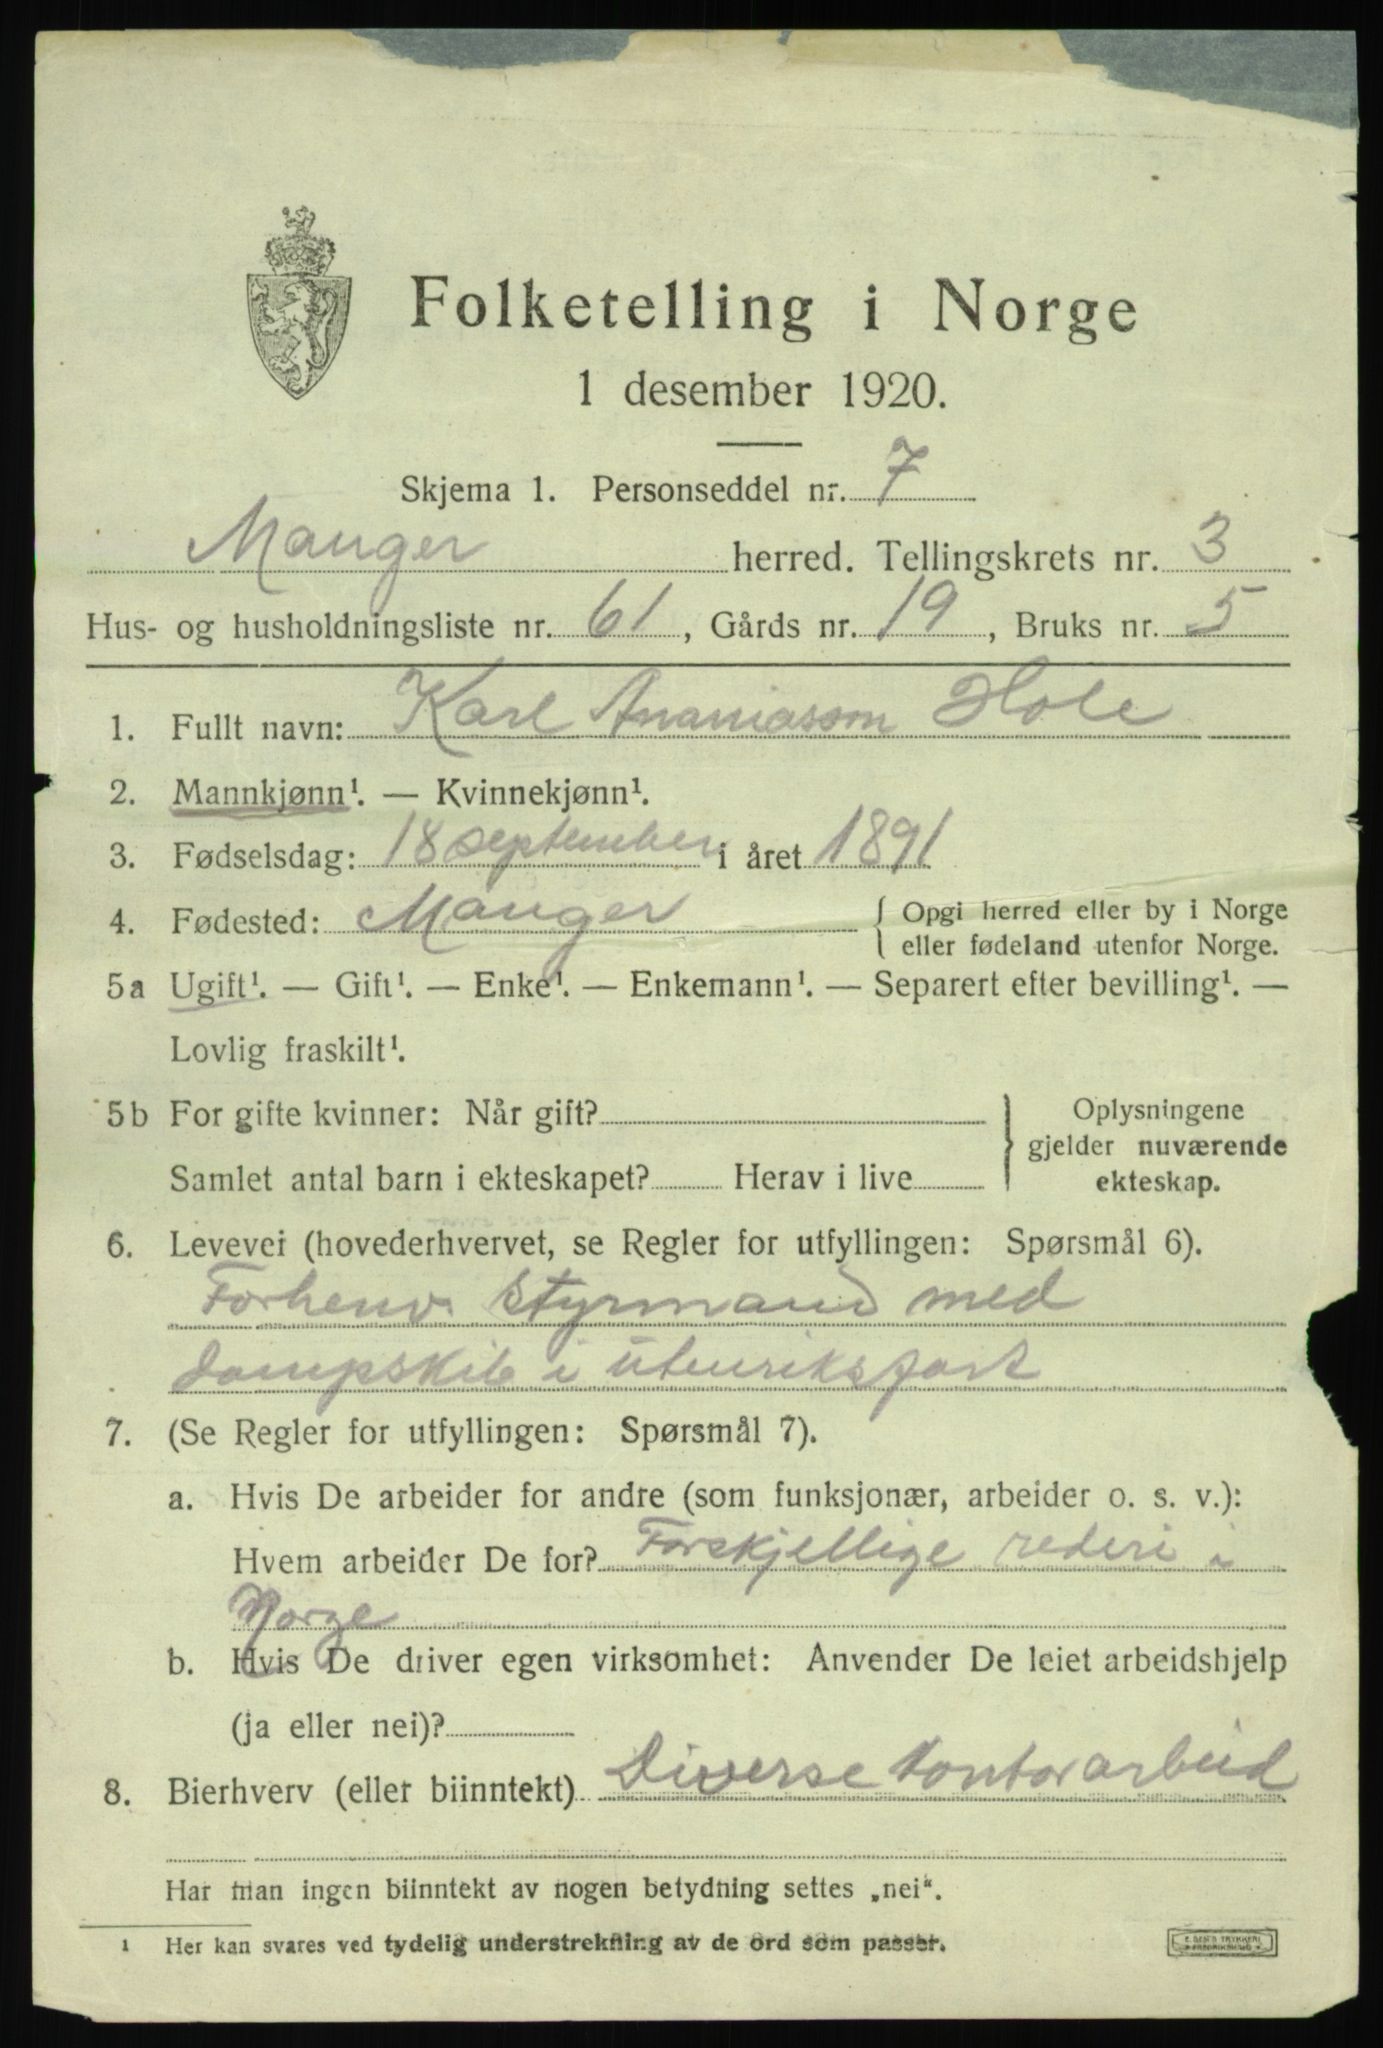 Folketelling i Norge
1 desember 1920.
Skjema 1. Personseddel nr. 7
Manger herred. Tellingskrets nr. 3
Hus- og husholdningsliste nr. 61, Gårds nr. 19, Bruks nr. 5
1. Fullt navn: Karl Ananiasson Hole
2. Mannkjønn¹. — Kvinnekjønn¹.
3. Fødselsdag: 18 september i året 1891
4. Fødested: Manger { Opgi herred eller by i Norge
eller fødeland utenfor Norge.
5a Ugift¹. — Gift¹. — Enke¹. — Enkemann¹. — Separert efter bevilling¹. —
Lovlig fraskilt¹.
5b For gifte kvinner: Når gift? } Oplysningene
gjelder nuværende
Samlet antal barn i ekteskapet? Herav i live ekteskap.
6. Levevei (hovederhvervet, se Regler for utfyllingen: Spørsmål 6).
Forhenv. Styrmand med
dampskib i utenriksfart
7. (Se Regler for utfyllingen: Spørsmål 7).
a. Hvis De arbeider for andre (som funksjonær, arbeider o. s. v.):
Hvem arbeider De for? Forskjellige rederi i
Norge
b. Hvis De driver egen virksomhet: Anvender De leiet arbeidshjelp
(ja eller nei)?
8. Bierhverv (eller biinntekt) Diverse kontorarbeid
Har man ingen biinntekt av nogen betydning settes „nei“.
¹ Her kan svares ved tydelig understrekning av de ord som passer.